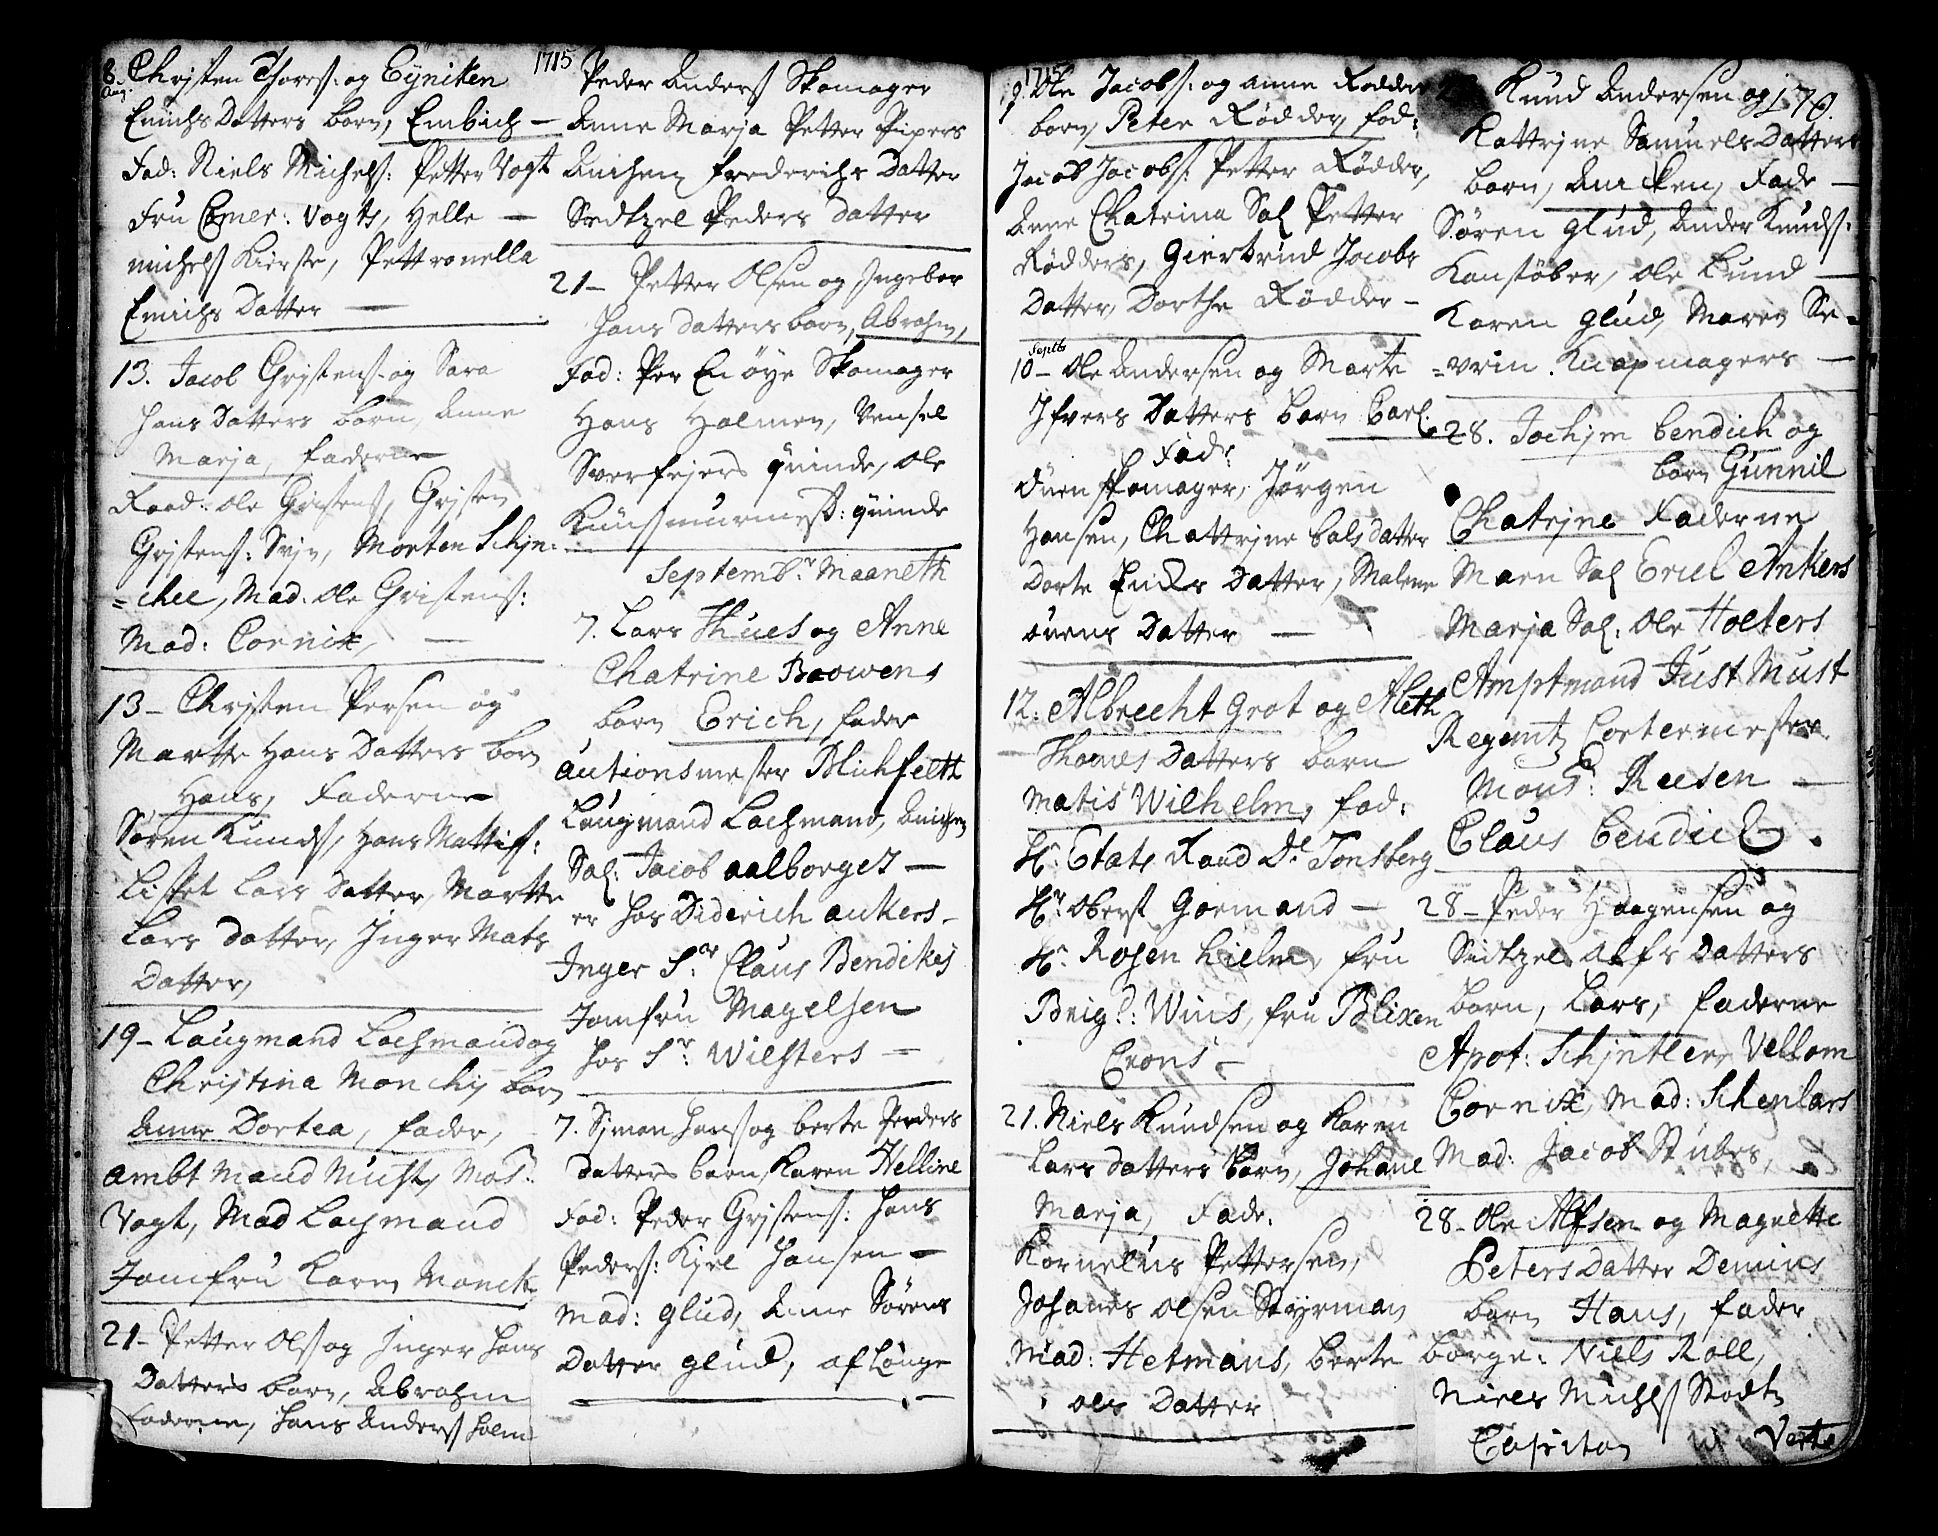 1715
8. Aug. Christen Thores: og Eÿniken
Emichs Datters barn, Embich —
Fad: Niels Michels: Petter Vogt
Fru Comer: Vogts, Helle —
michels Kierste, Pettronella
Emichs Datter —
13. Jacob Gristens: og Sara
Hans Datters barn, Anne
Marja, faderne
Raad: Ole Gristens, Gristen
Gristens: Svin, Morten Schjn-
=chel, Mad. Ole Gristens:
Mad: Cornix, —
13 – Christen Persen og
Martte Hans Datters barn
Hans, Faderne
Søren Kunds, Hans Mattis:
Lisbet Lars Datter, Martte
Lars Datter, Inger Mats
Datter,
19 – Laugmand Lachmand og
Christina Monchs barn
Anne Dortea, fader,
ambt Mand Must, Mos:
Vogt, Mad Lachmand
Jomfru Karen Monck,
21 – Petter Ols og Inger Hans
Datters barn, Abrahm
faderne, Hans Anders Holm
Peder Anders Skomager
Anne Marja Petter Pipers
Anichen frederichs Datter
Sedtzel Peders Datter
21 – Petter Olsen og Ingebor
Hans Datters barn, Abrahm,
Fad: Per Enøye Skomager
Hans Holmen, Vensel
Sverfejers quinde, Ole
Kuns murmest: quinde
Septemb: Maaneth
7. Lars Thues og Anne
Chatrine Boowens
barn Erich, fader
autionsmester Blichfeltt
Laugmand Lachmand, Anichen
Sal: Jacob aalborges —
er hos Diderich ankers –
Inger Sr. Claus Bendikes
Jomfru Magelsen
hos Sr: Wilsters —
7. Simon Hans og berte Peders
Datters barn, Karen Helline
Fad: Peder Gristens: Hans
Peders: Kjel Hansen —
Mad: Glud, Anne Sørens
Datter glud, af Longe
1715
9. Ole Jacobs: og anne Rødders
barn, Peter Rødder, fad:
Jacob Jacobs: Petter Rødder,
Anne Chatrina Sal Petter
Rødders, Giertrud Jacobs
Datter, Dorthe Rødder –
Septb
10 – Ole Andersen og Marte
Ifvers Datters barn Carl.
Fad:
Ouen Skomager, Jørgen
Hansen, Chattrine Calsdatter
Dorte Ericks Datter, Malene
Ouens Datter —
12. Albrecht Grot og Aleth
Thomes Datters barn
Matis Wilhelm, fad:
Hr. Etats Raad De Tonsberg
Hr. Oberst Gormand —
Hr. Rosen Kielm, fru
Brigd: Wins, fru Blixen
Crons –
21. Niels Kundsen og Karen
Lars Datters barn, Johane
Marja, Fad:
Kornelius Pettersen,
Johanes Olsen Styrman,
Mad: Hetmans, berte
Ols Datter
170.
Knud Andersen og
Kattrine Samuels Datters
barn, Anicken, Fade —
Søren Glud, Ander Knuds:
Konstøber, Ole Lund —
Karen Glud, Maren Se-
=vrin Knapmagers —
28. Jochjm bendich og
barn Gunnil
Chatrine Faderne
Maen Sal Eriel Ankers
Marja Sal: Ole Holters
Amptmand Just Must
Regemtz Cortermester
Mons: Reesen —
Claus bendich.
28 – Peder Haagensen og
Seitzel Alfs Datters
barn, Lars, faderne
Apot: Schjntler, Vellom
Cornix, Mad: Schenlars
Mad: Jacob Stubes,
28 – Ole Alfsen og Magnette
Peters Datter Demins
barn Hans, fader
børge: Niels Roll,
Niels Michels Stodt
Capitan
Verte